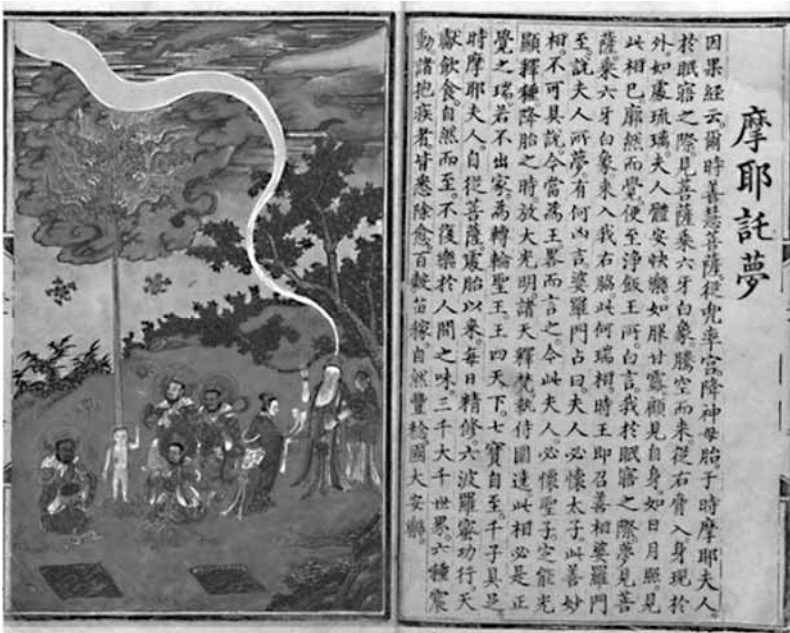 摩耶託夢
因果經云爾時善慧菩薩。從兜率宮。降神母胎。于時摩耶夫人。
於眠寤之際。見菩薩乘六牙白象。騰空而来。從右脅入。身現於
外。如處琉璃。夫人體安快樂。如服甘露。顧見自身。如日月照。見
此相已。廓然而覺。便至淨飯王所。白言。我於眠寤之際。夢見菩
薩乘六牙白象。来入我右脇。此何瑞相。時王即召善相婆羅門
至。說夫人所夢。有何凶吉。婆羅門占曰。夫人必懷太子。此善妙
相。不可具說。今當為王。畧而言之。今此夫人。必懷聖子。定能光
顯釋種。降胎之時。放大光明。諸天釋梵。執侍圍遶。此相必是正
覺之瑞。若不出家。為轉輪聖王。王四天下。七寶自至。千子具足。
時摩耶夫人。自從菩薩處胎以来。每日精修。六波羅蜜功行。天
獻飲食。自然而至。不復樂於人間之味。三千大千世界。六種震
動。諸抱疾者。皆悉除愈。百穀苗稼。自然豐稔。國大安樂。